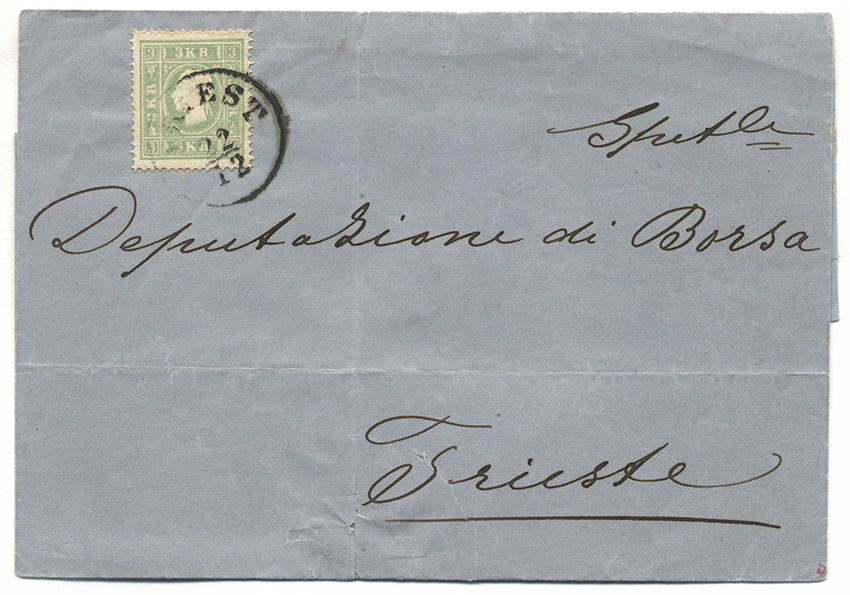 3 3 KR. 3
3 KR.
3 KR.
3 KR.
EST
22
12
Spet.le
Deputazione di Borsa
Trieste